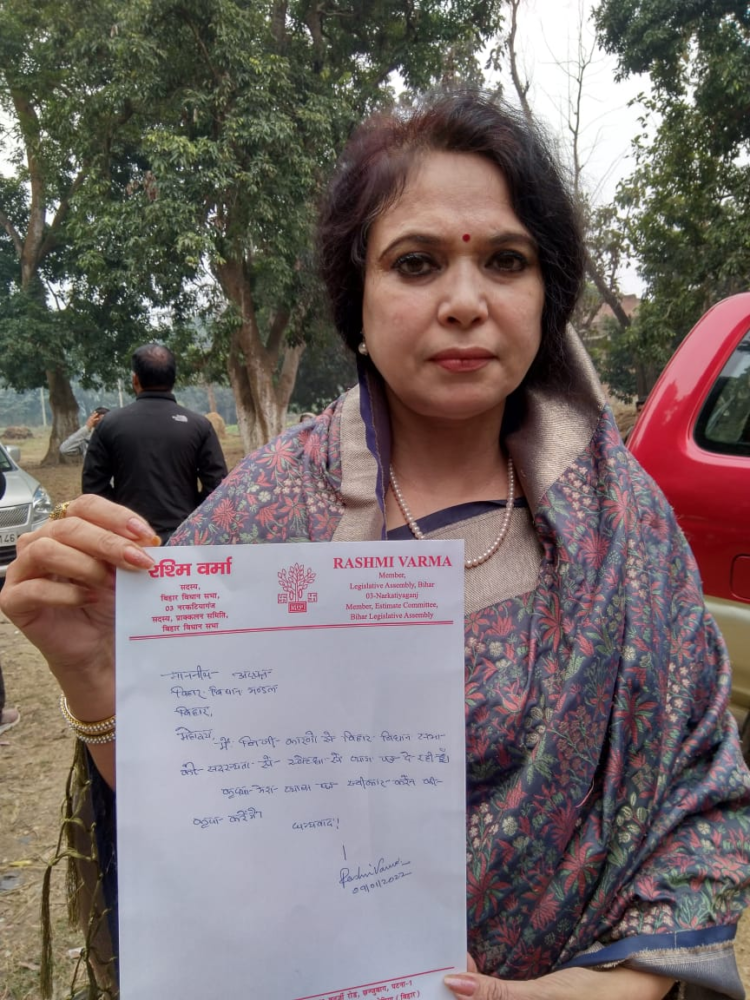 रश्मि वर्मा
सदस्य,
बिहार विधान सभा,
03 नरकटियागंज
सदस्य, प्राक्कलन समिति,
बिहार विधान सभा
RASHMI VARMA
Member,
Legislative Assembly, Bihar
03-Narkatiyaganj
Member, Estimate Committee,
Bihar Legislative Assembly
माननीय अध्यक्ष
बिहार विधान मण्डल
बिहार,
महोदय,
मैं निजी कारणों से बिहार विधान सभा
की सदस्यता से स्वेच्छा से त्याग पत्र दे रही हूँ।
कृपया मेरा त्याग पत्र स्वीकार करने की
कृपा करेंगे।
धन्यवाद!
Rashmi Varma
09/01/2022
रोड, छज्जुबाग, पटना-1
(बिहार)